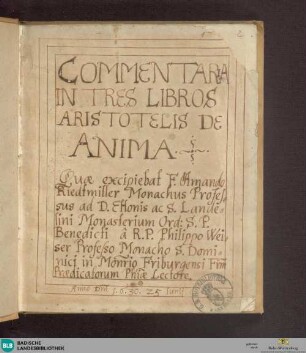 COMMENTARIA
IN TRES LIBROS
ARISTOTELIS DE
ANIMA.
Quæ excipiebat F. Amand9
Riedtmiller Monachus Profes
sus ad D. Ettonis ac S. Lande-
lini Monasterium Ord: S. P.
Benedicti â R. P. Philippo Wei
ser Professo Monacho S. Domi-
nici in Monrio Friburgensi
Prædicatorum Phiæ Lectore.
Anno Dni
BLB
BADISCHE
LANDESBIBLIOTHEK
Baden-Württemberg